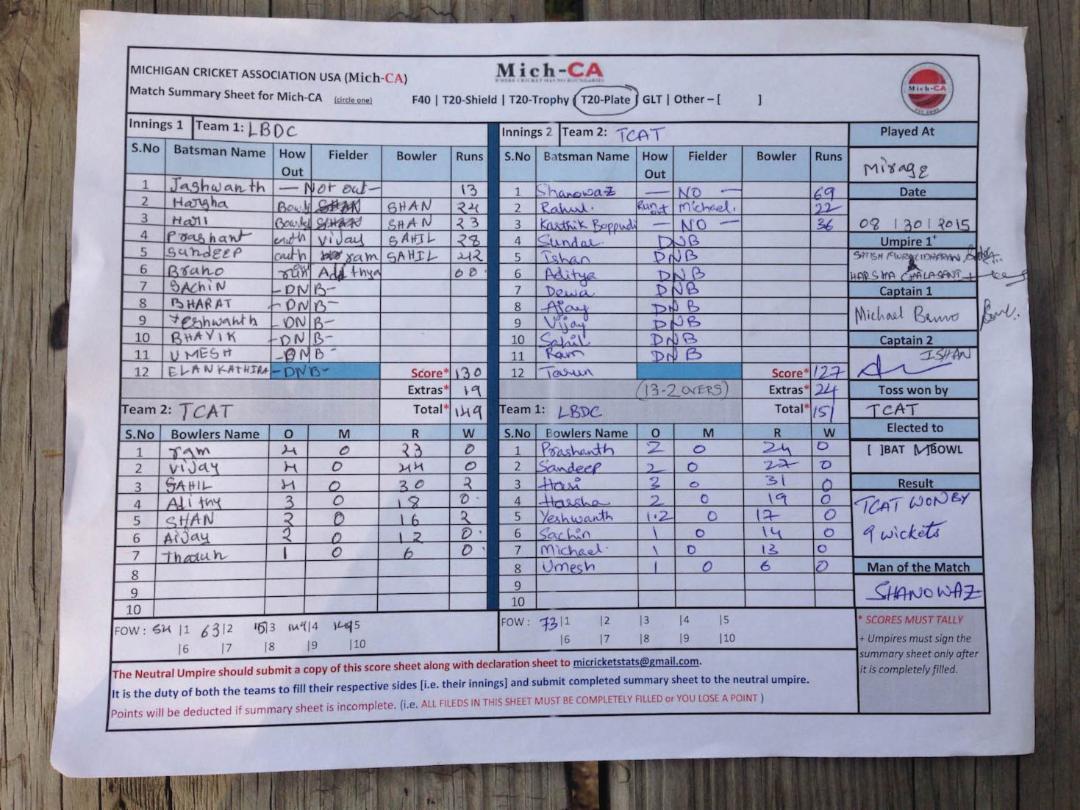 MICHIGAN CRICKET ASSOCIATION USA (Mich-CA)
Mich-CA
Match Summary Sheet for Mich-CA (circle one) F40 | T20-Shield | T20-Trophy | T20-Plate | GLT | Other – [ ]
Mich-CA
Innings 1 Team 1: LBDC
S.No Batsman Name How Out Fielder Bowler Runs
1 Jashwanth — Not out — 13
2 Harsha SHAN 24
3 Hari SHAN 23
4 Prashant Vijay SAHIL 28
5 Sandeep cauth ram SAHIL 42
6 Bruno run Adithya 00
7 SACHIN - DNB-
8 BHARAT - DNB-
9 Yeshwanth - DNB-
10 BHAVIK - DNB-
11 UMESH - DNB-
12 ELANKATHIRA - DNB- Score* 130
Extras* 19
Total* 149
Team 2: TCAT
S.No Bowlers Name O M R W
1 ram 4 0 23 0
2 Vijay 4 0 44 0
3 SAHIL 4 0 30 2
4 Adithy 3 0 18 0
5 SHAN 2 0 16 2
6 AiJay 2 0 12 0
7 Tharun 1 0 6 0
8
9
10
FOW : 54 |1 63|2 |3 149|4 149|5
|6 |7 |8 |9 |10
Innings 2 Team 2: TCAT
S.No Batsman Name How Out Fielder Bowler Runs
1 Shanowaz — NO — 69
2 Rahul. Run out Michael. 22
3 Karthik Boppudi — NO — 36
4 Sundar DNB
5 Ishan DNB
6 Aditya DNB
7 Dewa DNB
8 Ajay DNB
9 Vijay DNB
10 Sahil DNB
11 Ram DNB
12 Tarun Score* 127
(13-2 OVERS) Extras* 24
Total* 151
Team 1: LBDC
S.No Bowlers Name O M R W
1 Prashanth 2 0 24 0
2 Sandeep 2 0 27 0
3 Hari 3 0 31 0
4 Harsha 2 0 19 0
5 Yeshwanth 1.2 0 17 0
6 Sachin 1 0 14 0
7 Michael. 1 0 13 0
8 Umesh 1 0 6 0
9
10
FOW : 73|1 |2 |3 |4 |5
|6 |7 |8 |9 |10
Played At
Mirage
Date
08 | 30 | 2015
Umpire 1+
SATISH MURALIDHARAN,
HARSHA CHALASANI
Captain 1
Michael Bruno
Captain 2
ISHAN
Toss won by
TCAT
Elected to
[ ]BAT [✓]BOWL
Result
TCAT WON BY
9 wickets
Man of the Match
SHANOWAZ
* SCORES MUST TALLY
+ Umpires must sign the
summary sheet only after
it is completely filled.
The Neutral Umpire should submit a copy of this score sheet along with declaration sheet to micricketstats@gmail.com.
It is the duty of both the teams to fill their respective sides [i.e. their innings] and submit completed summary sheet to the neutral umpire.
Points will be deducted if summary sheet is incomplete. (i.e. ALL FILEDS IN THIS SHEET MUST BE COMPLETELY FILLED or YOU LOSE A POINT )